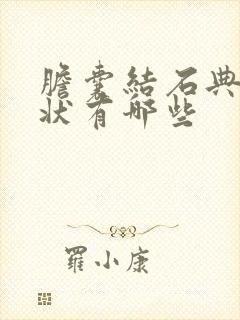 膽囊結石典
狀有哪些
羅小康